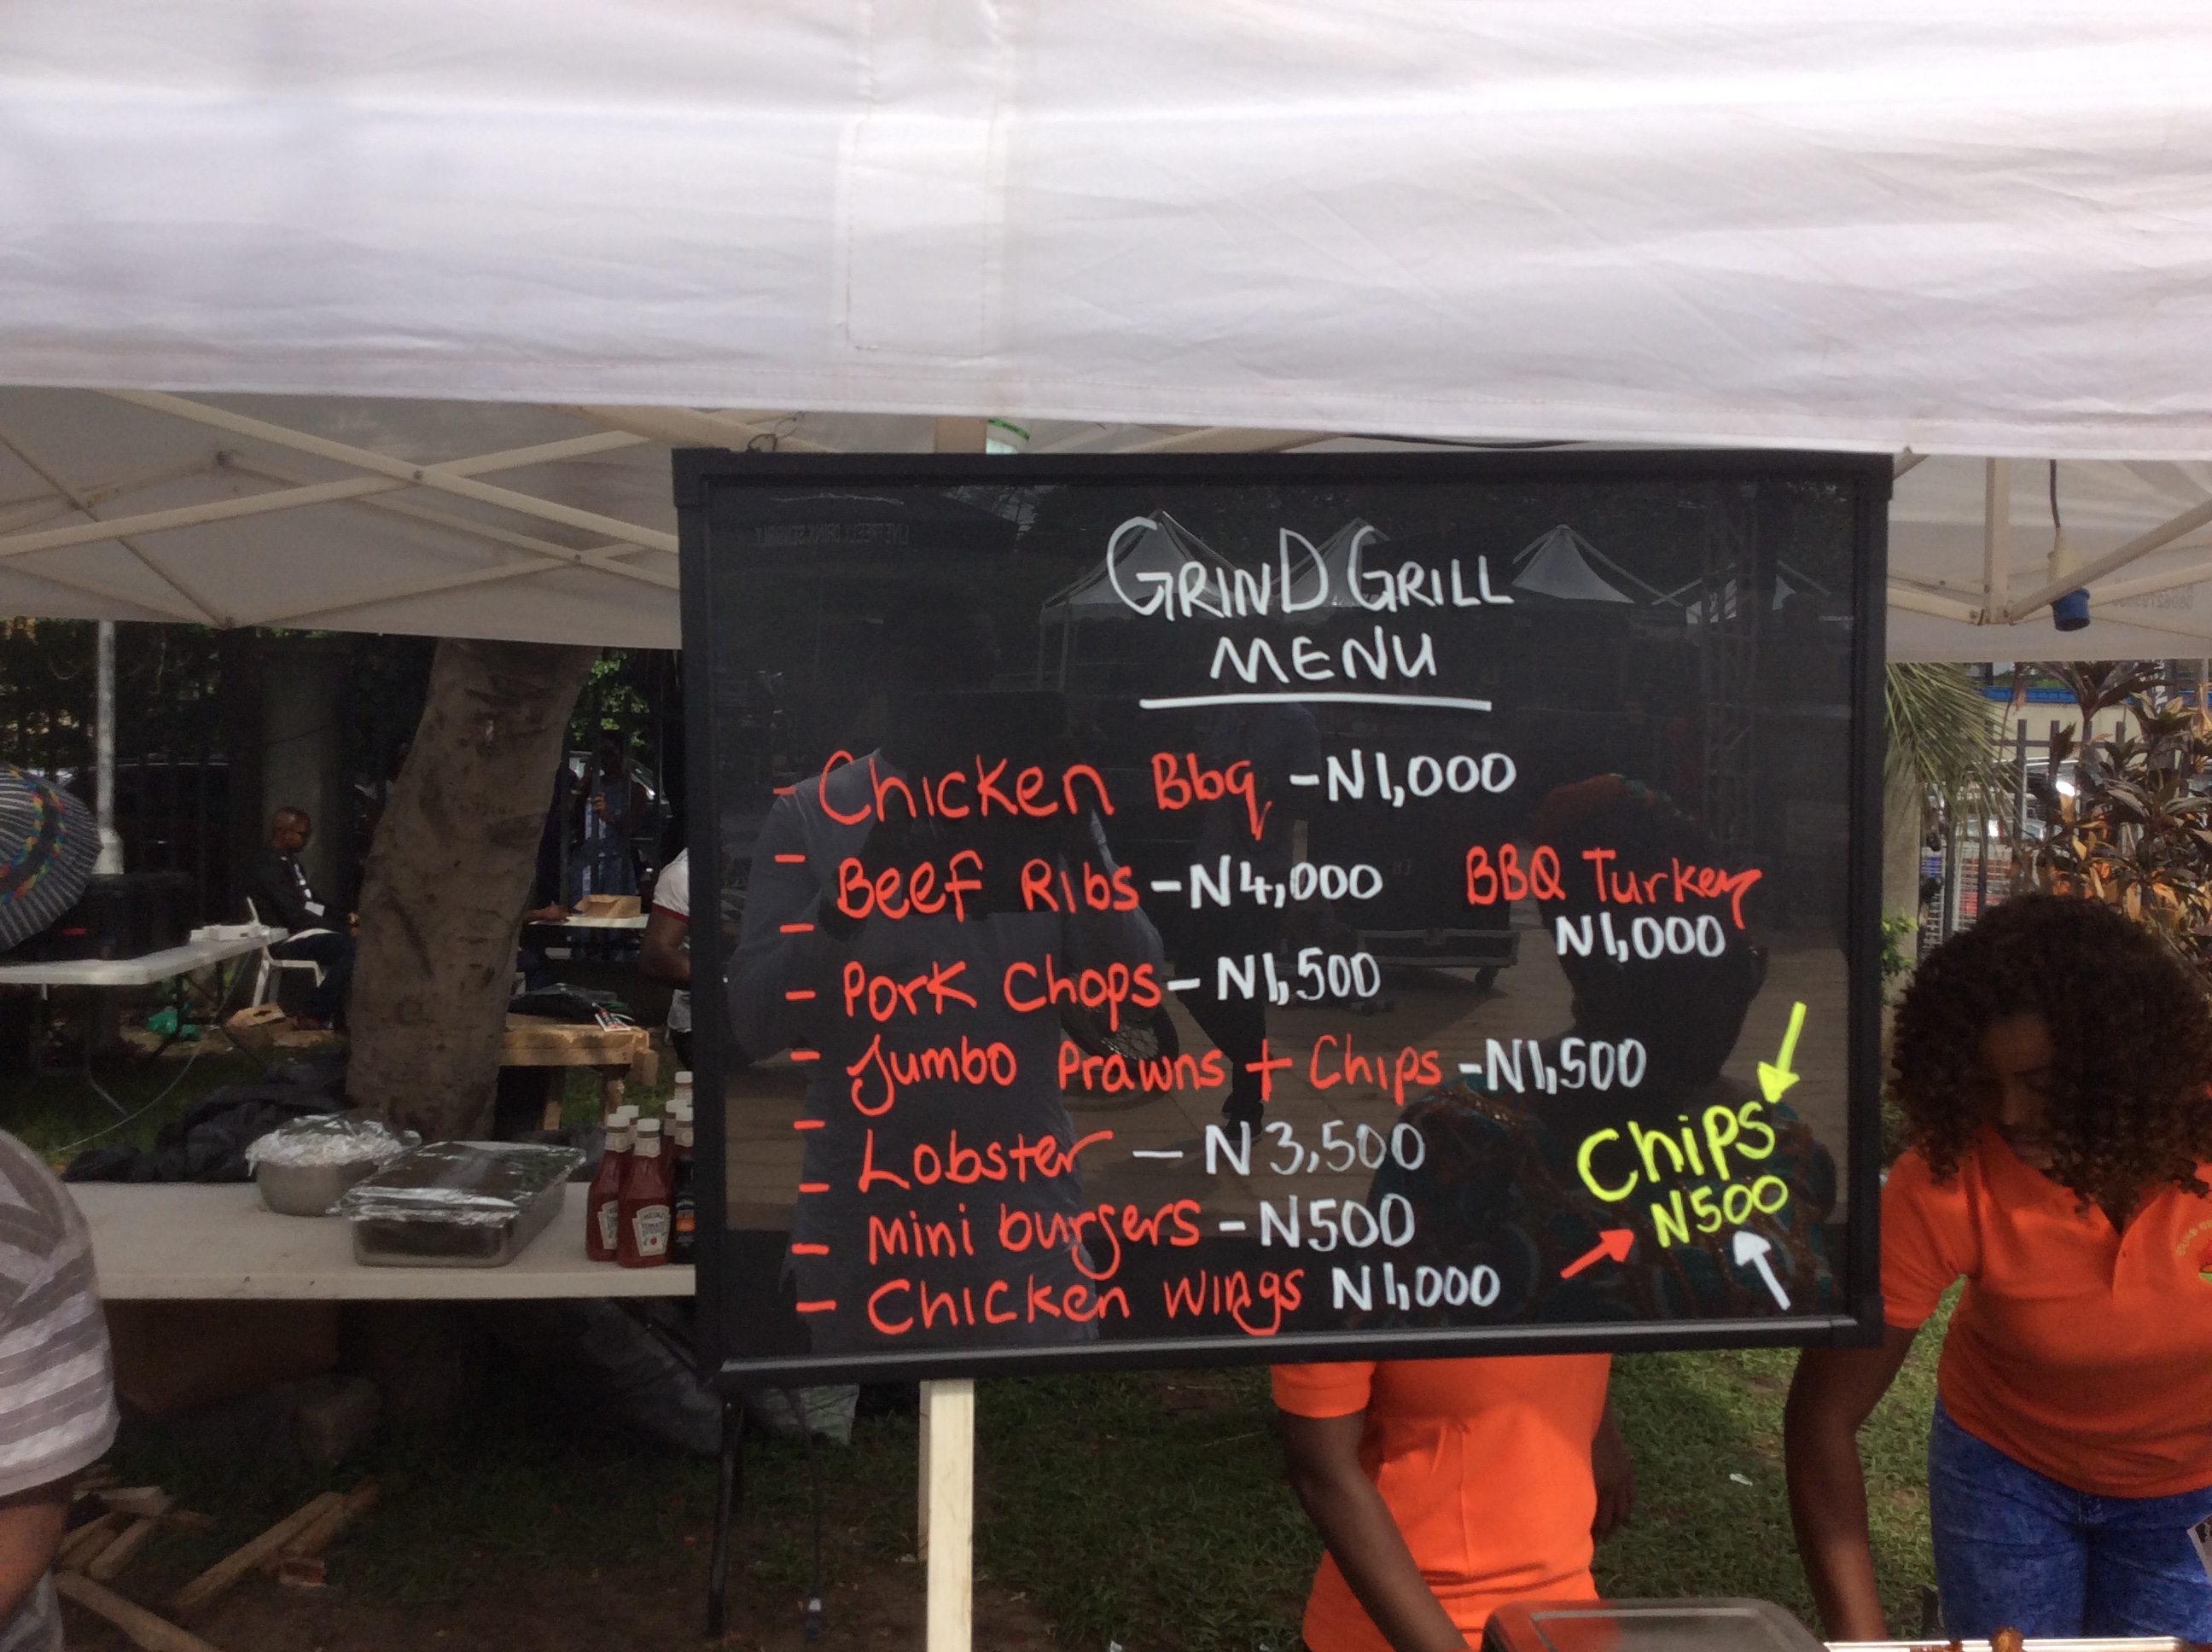 GRIND GRILL
MENU
- Chicken Bbq - N1,000
- Beef Ribs - N4,000
BBQ Turkey
N1,000
- Pork Chops - N1,500
- Jumbo Prawns + Chips - N1,500
- Lobster - N3,500
- Mini burgers - N500
- Chicken wings N1,000
Chips
N500
HEINZ